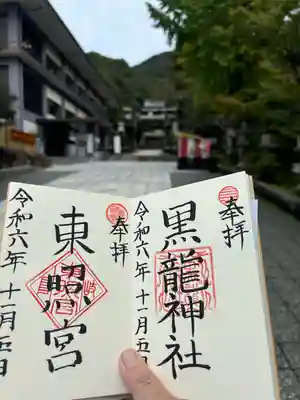 奉拝
黒龍神社
令和六年十一月五日
奉拝
東照宮
令和六年十一月五日